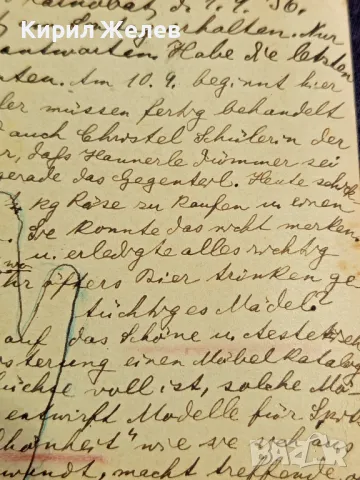 Кирил Желев
d. 1.9.36.
erhalten. Nur
antworten. Habe die letzten
nten. Am 10.9. beginnt hier
ler müssen fertig behandelt
d auch Christel Schülerin der
r, dafs Hannerle dümmer sei
gerade das Gegenteil. Heute schik
½ kg Käse zu kaufen u. einen
. Sie konnte das nicht merken
u. erledigte alles richtig
öfters Bier trinken ge
tüchtiges Mädel?
auf das Schöne u. Aestetisch
sterung einen Möbelkatalog
üchse voll ist, solche Mö
entwirft Modelle für
chönheit" wie sie sich aus
wundt, macht treffende
Кирил Желев
bazar.bg